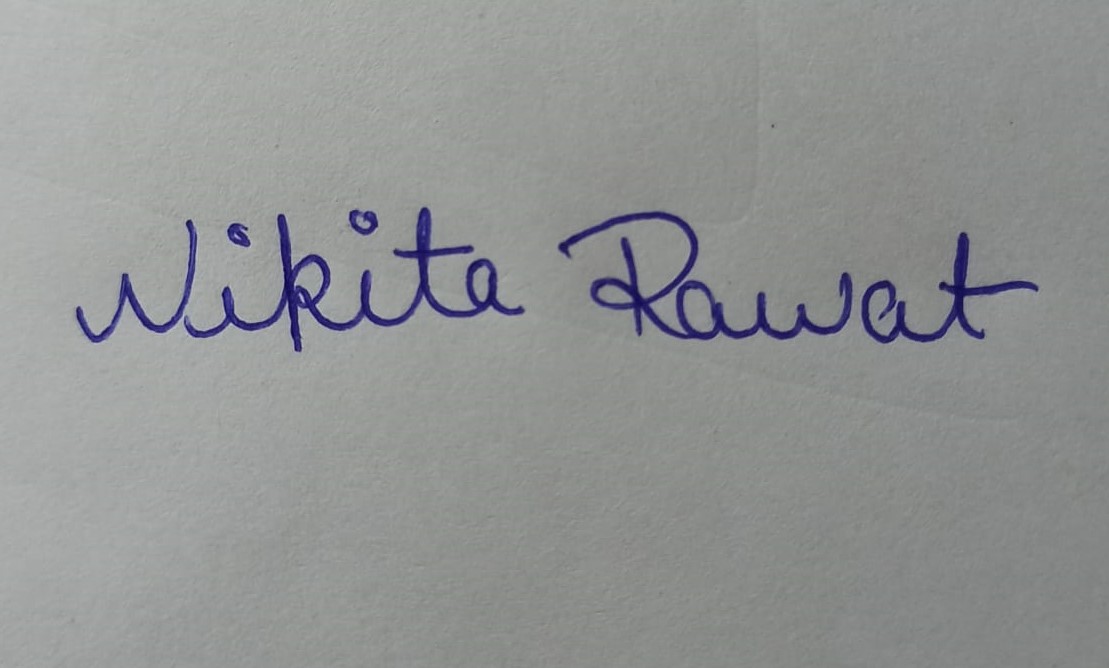 Nikita Rawat